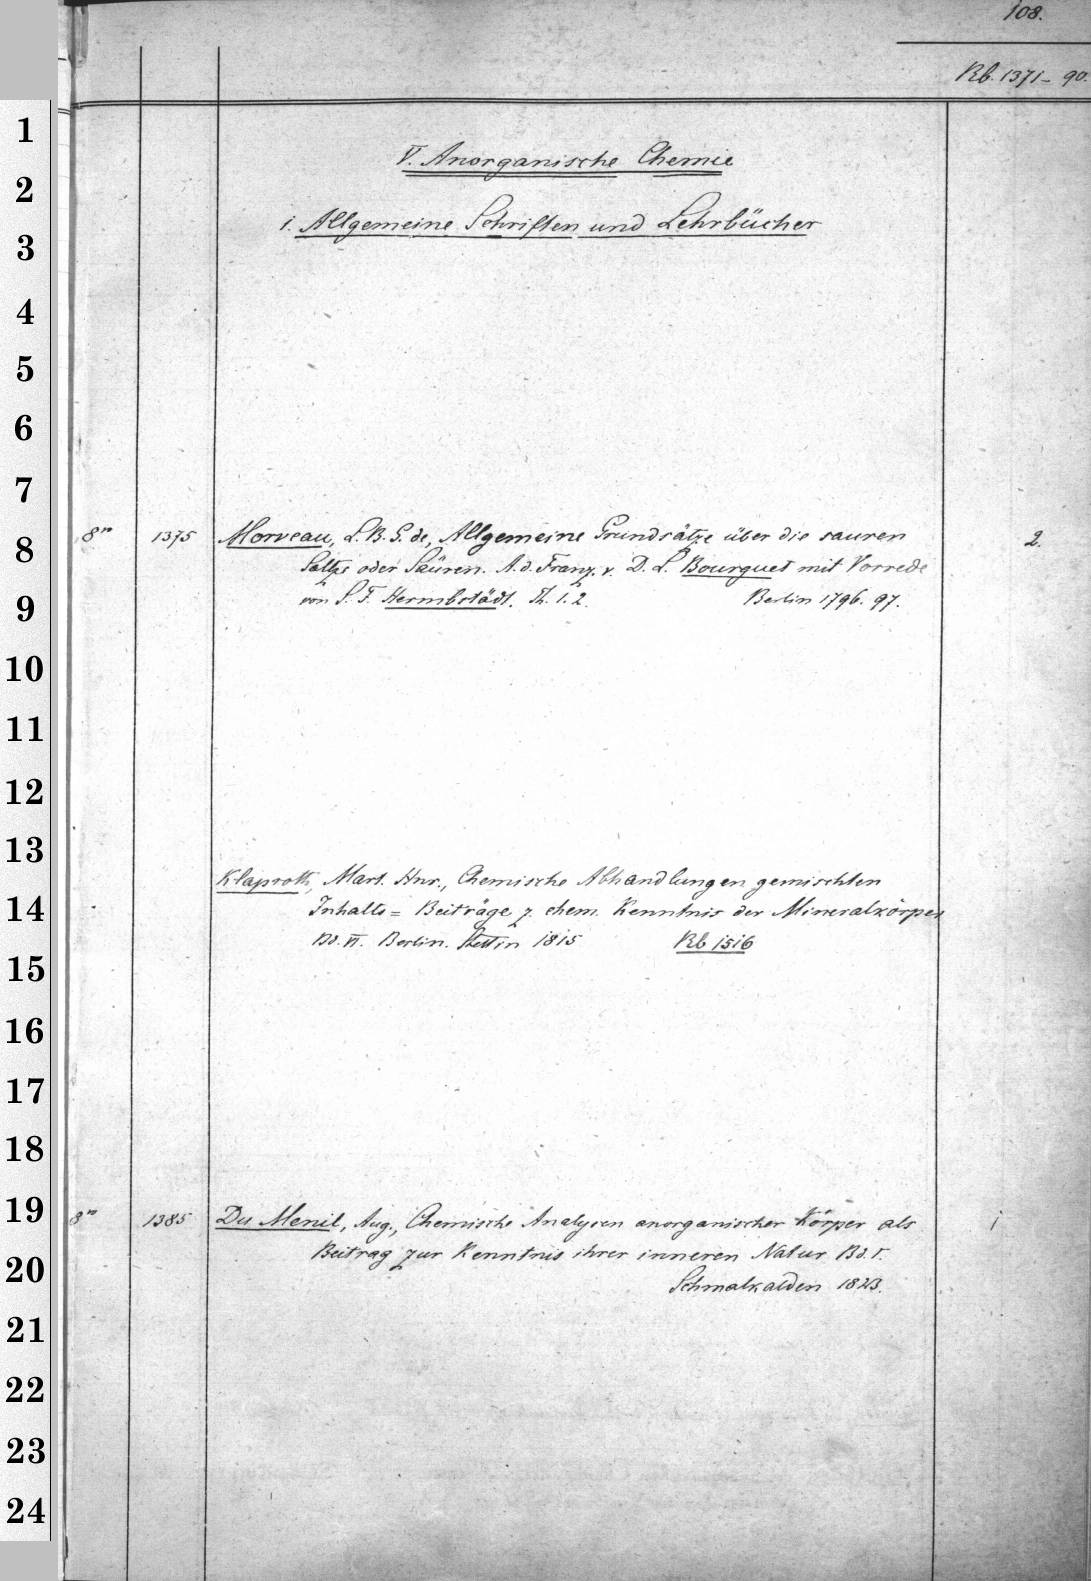 108.
Rb. 1371-90.
V. Anorganische Chemie
1. Allgemeine Schriften und Lehrbücher
8° 1375 Morveau, L. B. G. de, Allgemeine Grundsätze über die sauren 2.
Saltze oder Säuren. A. d. Franz. v. D. L. Bourguet mit Vorrede
von S. F. Hermbstädt. Th. 1. 2. Berlin 1796. 97.
Klaproth, Mart. Hnr., Chemische Abhandlungen gemischten
Inhalts = Beiträge z. chem. Kenntnis der Mineralkörper
Bd. VI. Berlin. Stettin 1815 Rb 1516
8° 1385 Du Menil, Aug., Chemische Analysen anorganischer Körper als 1
Beitrag zur Kenntnis ihrer inneren Natur Bd. I.
Schmalkalden 1823.
1
2
3
4
5
6
7
8
9
10
11
12
13
14
15
16
17
18
19
20
21
22
23
24